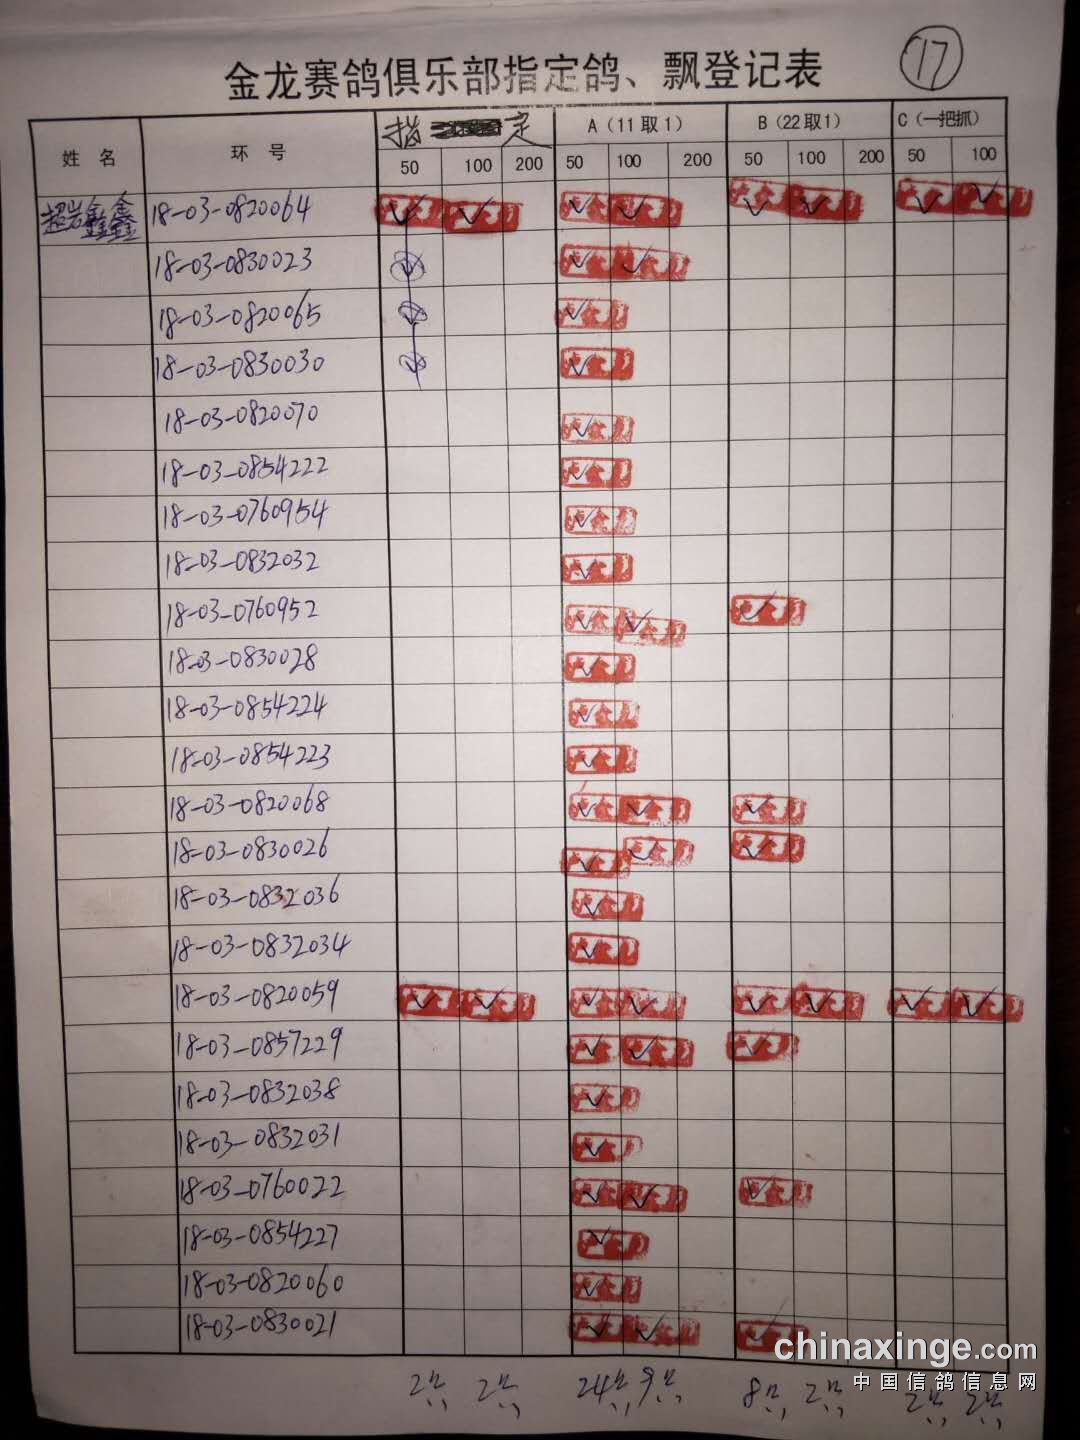 17
金龙赛鸽俱乐部指定鸽、飘登记表
姓 名 环 号 指 定 A（11取1） B（22取1） C（一把抓）
50 100 200 50 100 200 50 100 200 50 100
超岩鑫鑫 18-03-0820064 ✓ ✓ ✓ ✓ ✓ ✓ ✓ ✓
18-03-0830023 ✓ ✓
18-03-0820065 ✓
18-03-0830030 ✓
18-03-0820070 ✓
18-03-0854222 ✓
18-03-0760954 ✓
18-03-0832032 ✓
18-03-0760952 ✓ ✓ ✓
18-03-0830028 ✓
18-03-0854224 ✓
18-03-0854223 ✓
18-03-0820068 ✓ ✓ ✓
18-03-0830026 ✓ ✓ ✓
18-03-0832036 ✓
18-03-0832034 ✓
18-03-0820059 ✓ ✓ ✓ ✓ ✓ ✓ ✓ ✓
18-03-0857229 ✓ ✓ ✓
18-03-0832038 ✓
18-03-0832031 ✓
18-03-0760022 ✓ ✓ ✓
18-03-0854227 ✓
18-03-0820060 ✓
18-03-0830021 ✓ ✓ ✓
2只 2只 24只 9只 8只 2只 2只 2只
chinaxinge.com
中国信鸽信息网